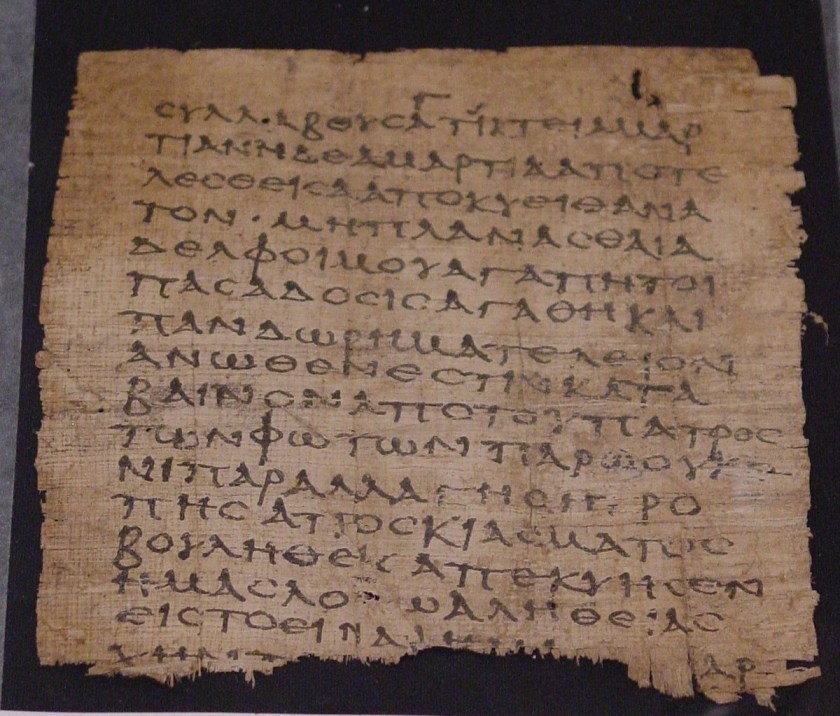 ϹΥΛΛΑΒΟΥϹΑΤΙΚΤΕΙΑΜΑΡ
ΤΙΑΝΗΔΕΑΜΑΡΤΙΑΑΠΟΤΕ
ΛΕϹΘΕΙϹΑΑΠΟΚΥΕΙΘΑΝΑ
ΤΟΝ · ΜΗΠΛΑΝΑϹΘΑΙΑ
ΔΕΛΦΟΙΜΟΥΑΓΑΠΗΤΟΙ
ΠΑϹΑΔΟϹΙϹΑΓΑΘΗΚΑΙ
ΠΑΝΔΩΡΗΜΑΤΕΛΕΙΟΝ
ΑΝΩΘΕΝΕϹΤΙΝΚΑΤΑ
ΒΑΙΝΟΝΑΠΟΤΟΥΠΑΤΡΟϹ
ΤΩΝΦΩΤΩΝΠΑΡΩΟΥΚΕ
ΝΙΠΑΡΑΛΛΑΓΗϹΗΤΡΟ
ΠΗϹΑΠΟϹΚΙΑϹΜΑΤΟϹ
ΒΟΥΛΗΘΕΙϹΑΠΕΚΥΗϹΕΝ
ΗΜΑϹΛΟΓΩΑΛΗΘΕΙΑϹ
ΕΙϹΤΟΕΙΝΑΙ